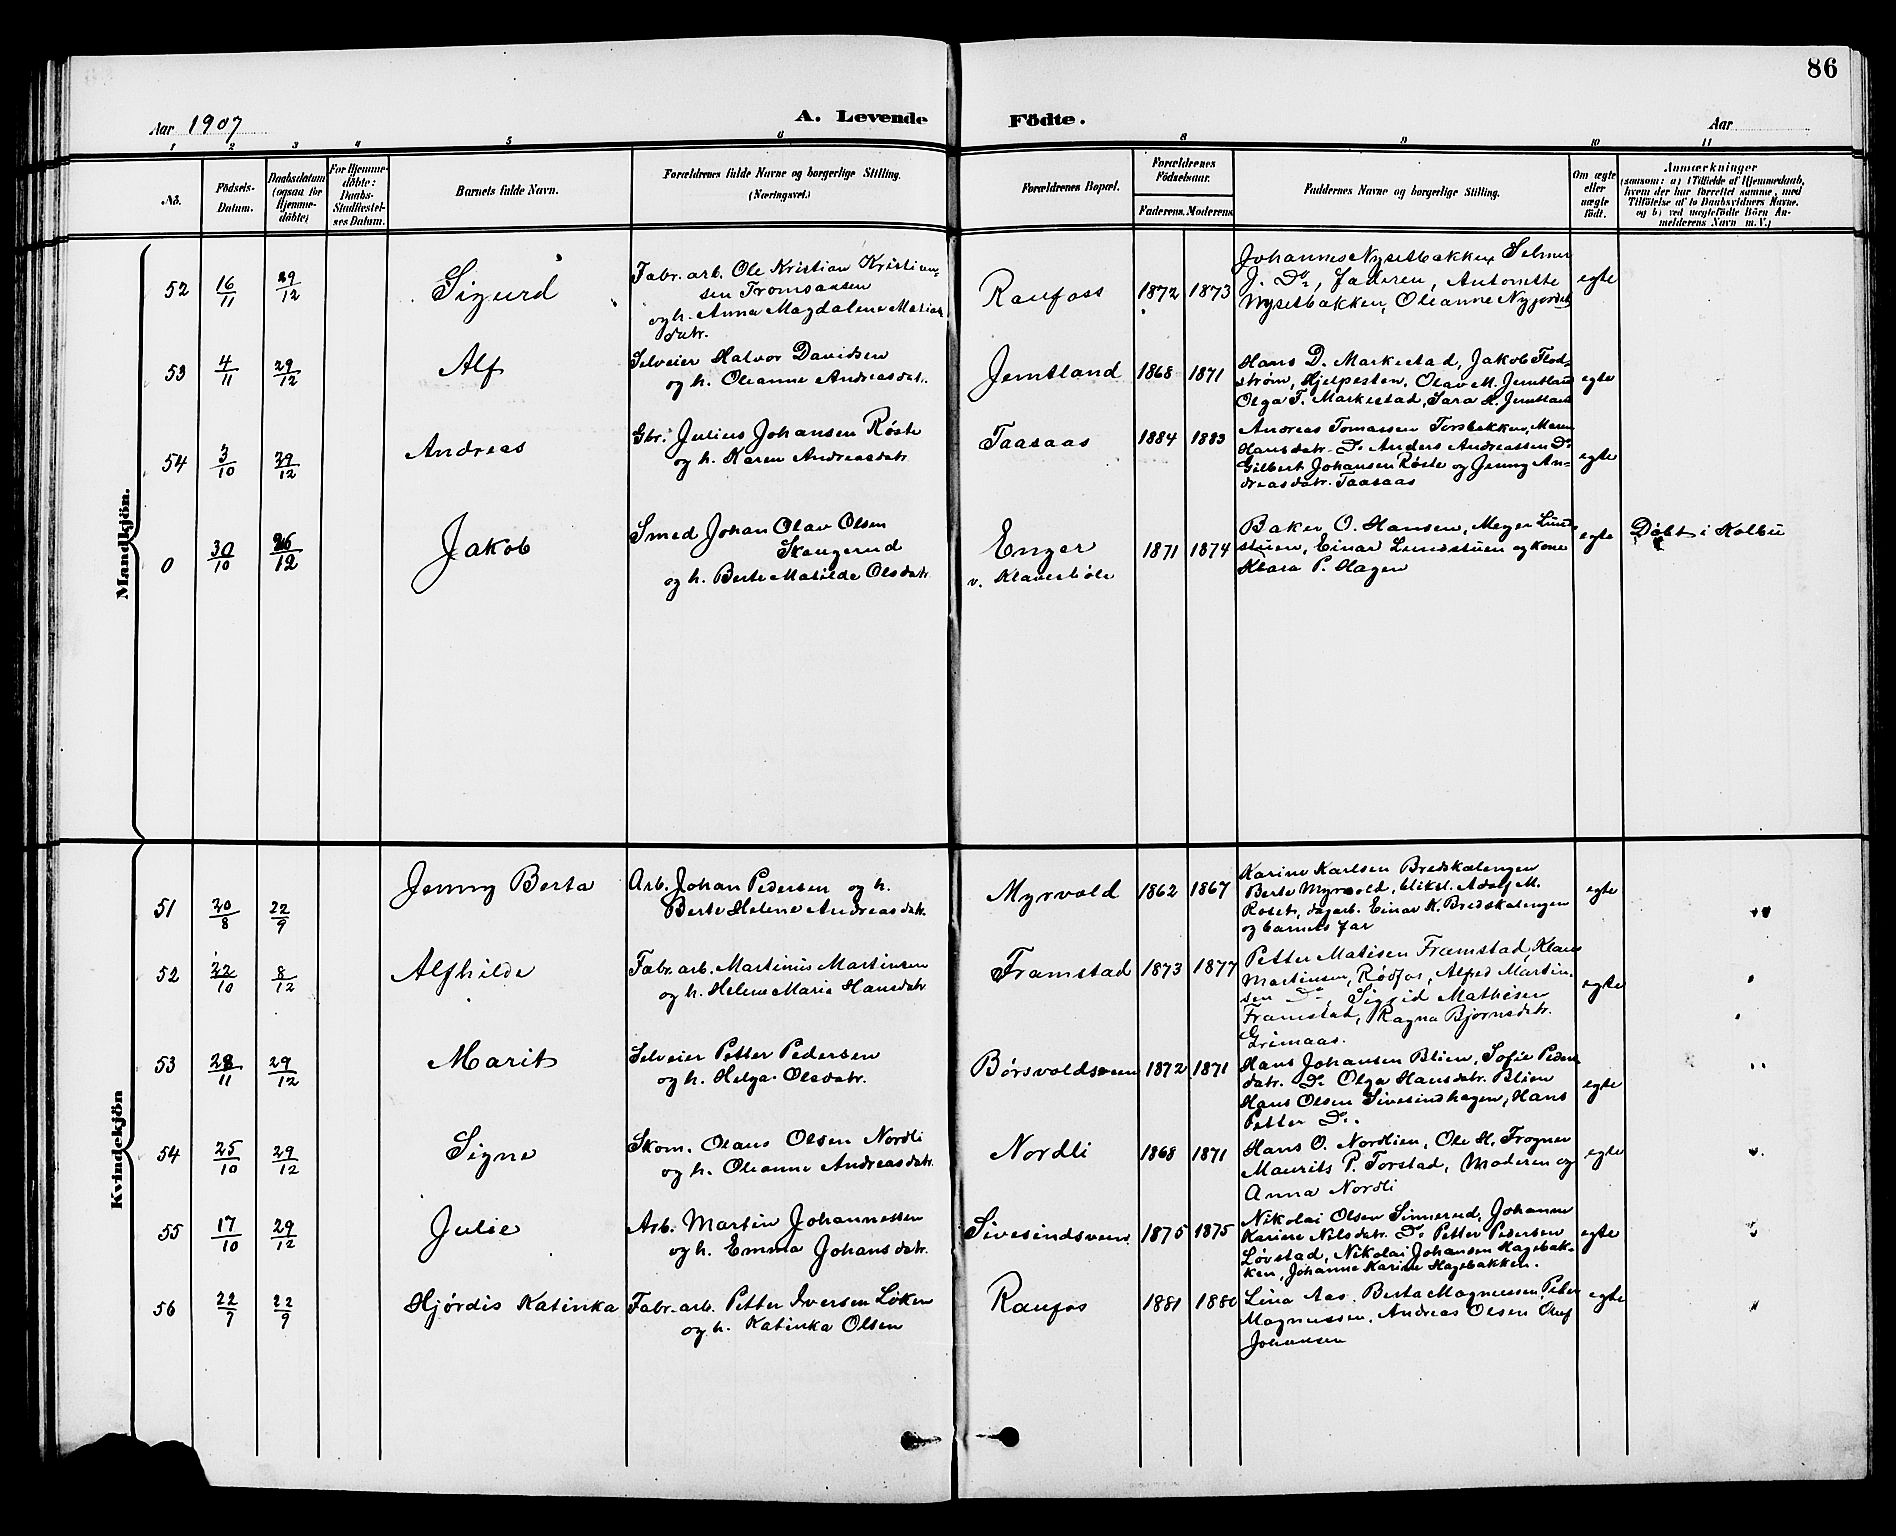 86
Aar 1907
A. Levende
Födte.
Aar
1 2 3 4 5 6 8 9 10 11
No.
Födsels-
Datum.
Daabsdatum
(ogsaa for
Hjemme-
döbte)
For Hjemme-
döbte:
Daabs-
Stadfæstel-
ses Datum.
Barnets fulde Navn.
Forældrenes fulde Navne og borgerlige Stilling.
(Næringsvei.)
Forældrenes Bopæl.
Forældrenes
Födselsaar.
Faderens. Moderens.
Faddernes Navne og borgerlige Stilling.
Om ægte
eller
uægte
födt.
Anmærkninger
(saasom: a) i Tilfælde af Hjemmedaab,
hvem der har forrettet samme, med
Tilföielse af to Daabsvidners Navne.
og b) ved uægtefödte Börn An-
melderens Navn m. V.)
Mandkjön.
52 16/11 29/12 Sigurd
Fabr. arb. Ole Kristian Kristian-
sen Fromsaasen
og h. Anna Magdalene Matias
datr.
Raufoss 1872 1873
Johannes Nysetbakken Selmer
J. Do, Faderen, Antonette
Nysetbakken, Oleanne Nygjordet
egte
53 4/11 29/12 Alf
Selveier Halvor Davidsen
og h. Oleanne Andreasdat.
Jemtland 1868 1871
Hans D. Markestad, Jakob Flod-
strøm, Hjelpesten, Olav M. Jemtland
Olga T. Markestad, Sara H. Jemtland
egte
54 3/10 29/12 Andreas
Gbr. Julius Johansen Røste
og h. Karen Andreasdatr
Taasaas 1884 1883
Andreas Tomassen Torsbakken, Maren
Hansdatr. Do Anders Andreassen Do
Gilbert Johansen Røste og Jenny An-
dreasdatr. Taasaas
egte
0 30/10 26/12 Jakob
Smed Johan Olav Olsen
Skangerud
og h. Berte Matilde Olsdatr
Enger
v. Klæverbøle
1871 1874
Baker O. Hansen, Meyer Lund-
stuen, Einar Lundstuen og kone
Klara P. Hagen
egte
Døbt i Kolbu
Kvindekjön
51 20/8 22/9 Jenny Berta
Arb. Johan Pedersen og h.
Berte Helene Andreasdat.
Myrvold 1862 1867
Karine Karlsen Bredskalengen
Berte Myrvold, bliksl. Adolf M.
Roset, dagarb. Einar K. Bredskalengen
og barnets far
egte
52 22/10 8/12 Alfhilde
Fabr. arb. Martinus Martinsen
og h. Helene Marie Hansdatr
Framstad 1873 1877
Petter Matisen Framstad, Klaus
Martinsen, Rødfos, Alfred Martin-
sen Do, Sigrid Mathisen
Framstad, Ragna Bjørnsdatr.
Grimaas.
egte
53 28/11 29/12 Marit
Selveier Petter Pedersen
og h. Helga Olsdatr.
Børsvoldsveen 1872 1871
Hans Johansen Blien, Sofie Peders
datr. Do Olga Hansdatr. Blien
Hans Olsen Sivesindhagen, Hans
Petter Do.
egte
54 25/10 29/12 Signe
Skom. Olaus Olsen Nordli
og h. Oleanne Andreasdatr.
Nordli 1868 1871
Hans O. Nordlien, Ole H. Frogner
Maurits P. Torstad, Moderen og
Anna Nordli
egte
55 17/10 29/12 Julie
Arb. Martin Johannessen
og h. Emma Johansdatr.
Sivesindsveen 1875 1875
Nikolai Olsen Sinnerud, Johanne
Karine Nilsdatr. Do Petter Pedersen
Løvstad, Nikolai Johansen Hagebak-
ken, Johanne Karine Hagebakken.
egte
56 22/7 22/9 Hjørdis Katinka
Fabr. arb. Petter Iversen Løken
og h. Katinka Olsen
Raufos 1881 1880
Lina Aas. Berta Magnussen, Peter
Magnussen, Andreas Olsen Oluf
Johansen
egte